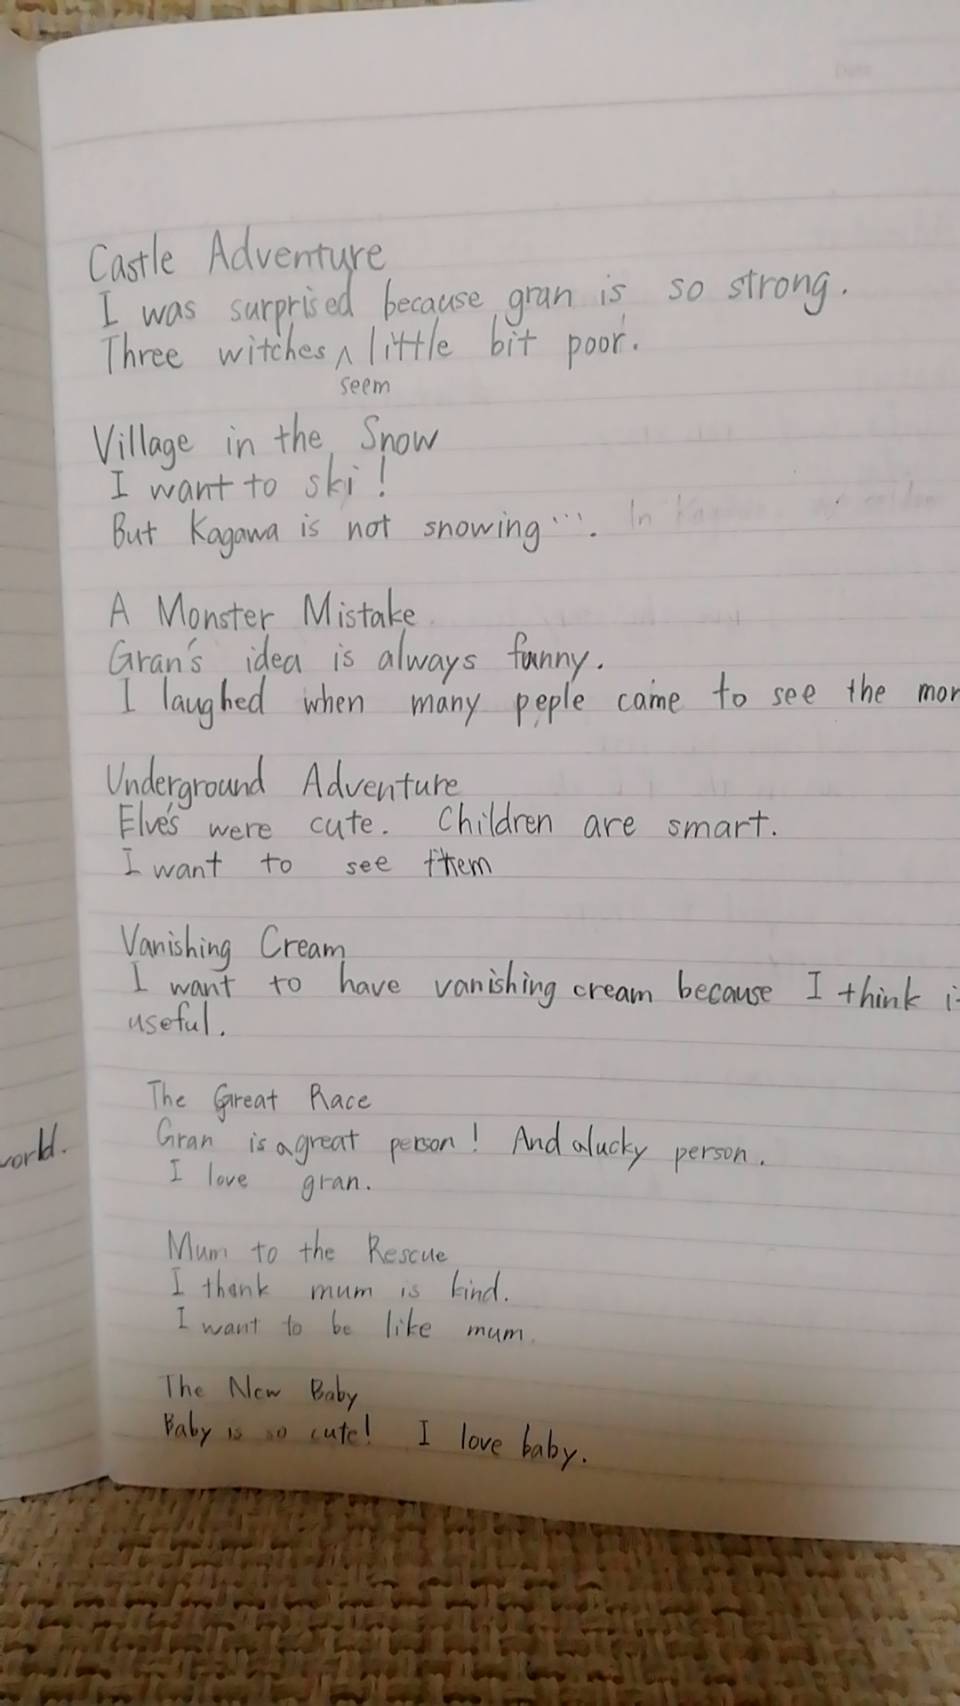 Castle Adventure
I was surprised because gran is so strong.
Three witches ^ little bit poor.
seem
Village in the Snow
I want to ski!
But Kagawa is not snowing···. In
A Monster Mistake
Gran's idea is always funny.
I laughed when many peple came to see the mon
Underground Adventure
Elve's were cute. Children are smart.
I want to see them
Vanishing Cream
I want to have vanishing cream because I think i
useful.
The Great Race
world.
Gran is a great person! And a lucky person.
I love gran.
Mum to the Rescue
I thank mum is kind.
I want to be like mum.
The New Baby
Baby is so cute! I love baby.